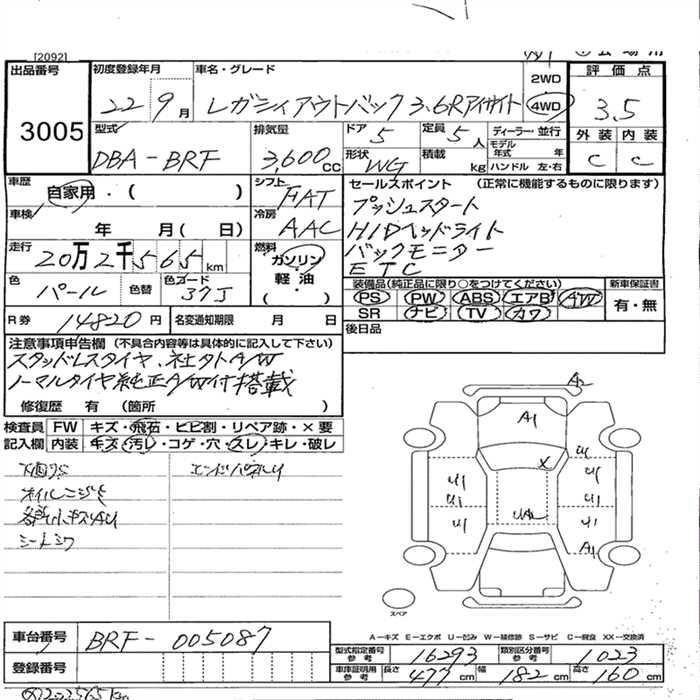 [2092]
出品番号
3005
初度登録年月
22 9月
車名・グレード
レガシィアウトバック3.6Rアイサイト
2WD
4WD
評価点
3.5
外装 内装
C C
型式
DBA-BRF
排気量
3,600cc
ドア 5
形状 WG
定員 5人
積載 kg
ディーラー・並行
モデル年式 年
ハンドル 左・右
車歴
自家用・( )
シフト FAT
車検
年 月( 日)
冷房 AAC
走行
20万2千565km
燃料
ガソリン
軽油
( ・ )
色 パール
色替
色コード 37J
R券 14820円
名変通知期限 月 日
セールスポイント (正常に機能するものに限ります)
プッシュスタート
HIDヘッドライト
バックモニター
ETC
装備品(純正品に限り○をつけてください)
PS PW ABS エアB AW
SR ナビ TV カワ
新車保証書
有・無
後日品
注意事項申告欄 (不具合内容等は具体的に記入して下さい)
スタッドレスタイヤ、社外A/W
ノーマルタイヤ純正A/W付搭載
修復歴 有 (箇所 )
検査員記入欄
FW キズ・飛石・ヒビ割・リペア跡・×要
内装 キズ・汚レ・コゲ・穴・スレ・キレ・破レ
下廻サビ
オイルニジミ
各部小キズAU
シートシワ
エンドパネルU
A2
A1
X
UA2
U1
U1
U1
U1
U1
U1
A1
スペア
A-キズ E-エクボ U-凹み W-補修跡 S-サビ C-腐食 XX-交換済
車台番号
BRF-005087
登録番号
型式指定番号 参考 16293
類別区分番号 参考 1023
車庫証明用 参考 長さ 477cm 幅 182cm 高さ 160cm